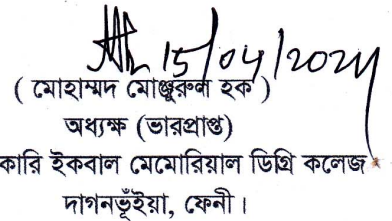 15/04/2024
( মোহাম্মদ মোঞ্জুরুল হক )
অধ্যক্ষ (ভারপ্রাপ্ত)
কারি ইকবাল মেমোরিয়াল ডিগ্রি কলেজ
দাগনভূঁইয়া, ফেনী।